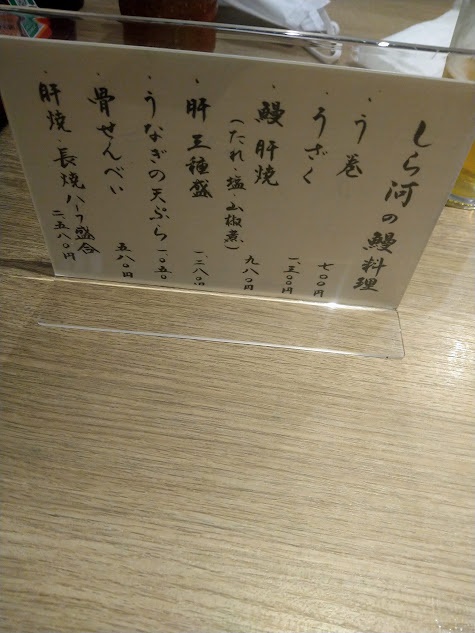 しら河の鰻料理
・う巻 七〇〇円
・うざく 一、三〇〇円
・鰻肝焼
(たれ・塩・山椒煮) 九八〇円
・肝三種盛 一、二八〇円
・うなぎの天ぷら 一〇五〇
・骨せんべい 五八〇円
・肝焼・長焼ハーフ盛合 二五八〇円